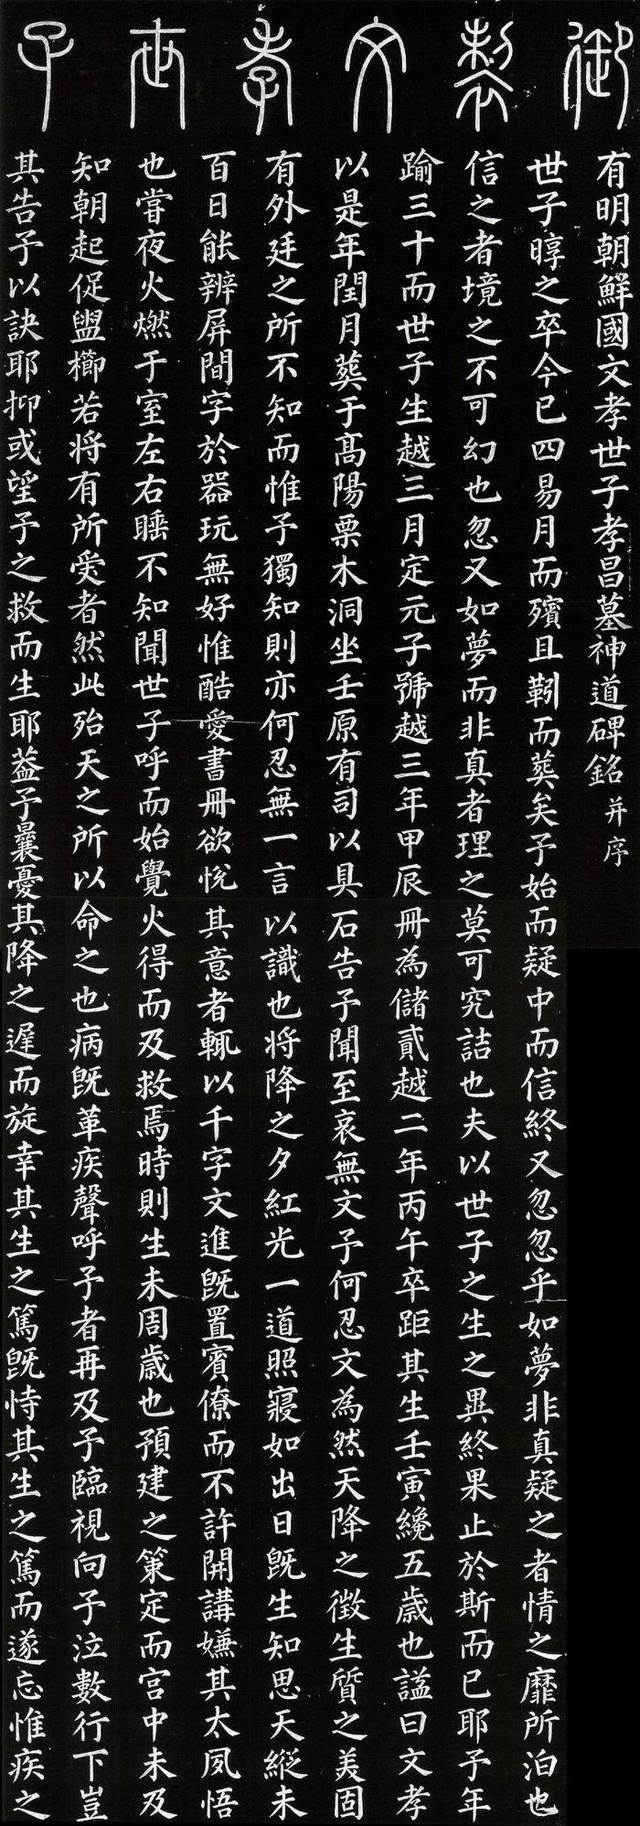 御製文孝世子
有明朝鮮國文孝世子孝昌墓神道碑銘 并序
世子㬀之卒今已四易月而殯且靷而葬矣予始而疑中而信終又忽忽乎如夢非真疑之者情之靡所泊也
信之者境之不可幻也忽又如夢而非真者理之莫可究詰也夫以世子之生之異終果止於斯而已耶予年
踰三十而世子生越三月定元子號越三年甲辰冊為儲貳越二年丙午卒距其生壬寅纔五歲也謚曰文孝
以是年閏月葬于高陽栗木洞坐壬原有司以具石告予聞至哀無文予何忍文為然天降之徵生質之美固
有外廷之所不知而惟予獨知則亦何忍無一言以識也将降之夕紅光一道照寢如出日既生知思天縱未
百日能辨屏間字於器玩無好惟酷愛書冊欲悅其意者輒以千字文進既置賓僚而不許開講嫌其太夙悟
也嘗夜火燃于室左右睡不知聞世子呼而始覺火得而及救焉時則生未周歲也預建之策定而宮中未及
知朝起促盥櫛若将有所受者然此殆天之所以命之也病既革疾聲呼予者再及予臨視向予泣數行下豈
其告予以訣耶抑或望予之救而生耶蓋予曩憂其降之遲而旋幸其生之篤既恃其生之篤而遂忘惟疾之